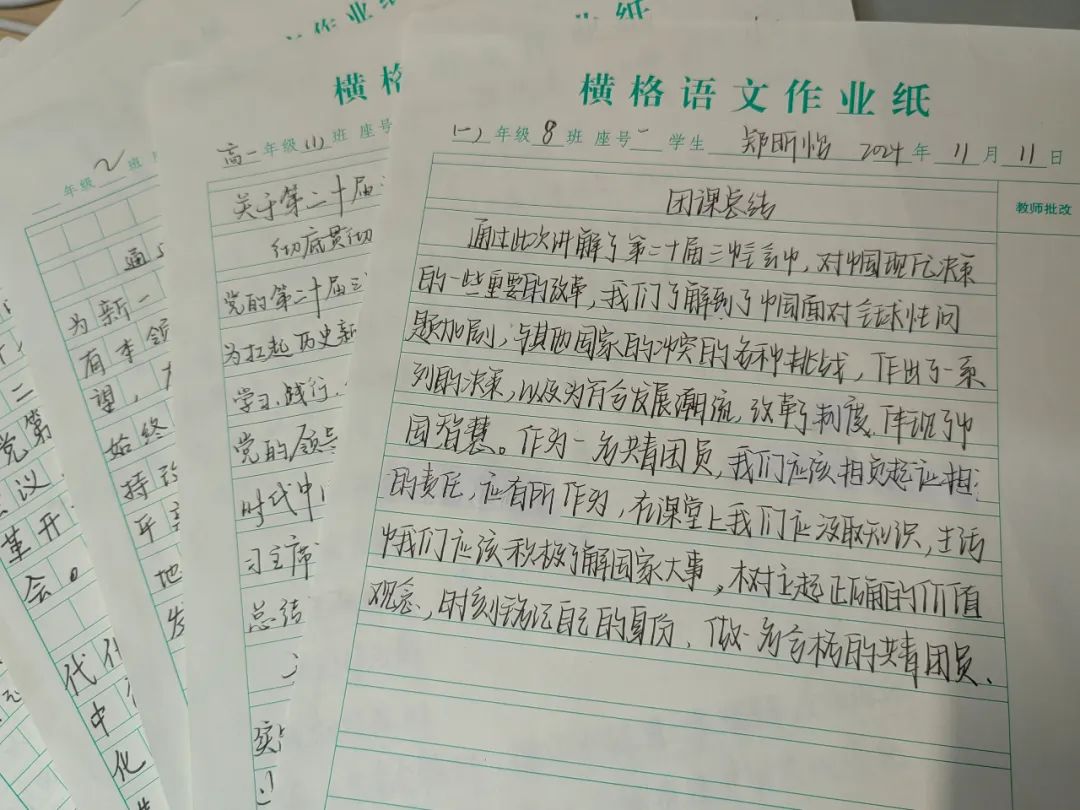 横格语文作业纸
(一)年级 8 班 座号 二 学生 郑昕怡 2024 年 11 月 11 日
教师批改
团课总结
通过此次讲解了第二十届三中全会中,对中国现代决策
的一些重要的改革,我们了解到了中国面对全球性问
题加剧,与其他国家的冲突的各种挑战,作出了一系
列的决策,以及为符合发展潮流,改革了制度,体现了中
国智慧。作为一名共青团员,我们应该担负起应担
的责任,应有所作为,在课堂上我们应汲取知识,生活
中我们应该积极了解国家大事,树立起正确的价值
观念,时刻铭记自己的身份,做一名合格的共青团员、
横格
高一年级 11 班 座号
关于第二十届
彻底贯彻
党的第二十届三
为扛起历史新
学习、践行、
党的领导
时代中
习主席
总结
实
作业纸
年级 2 班
通
为新一
有李领
望,
始终
持
开
地
发
二
党第
议
革开
会。
代
中
化